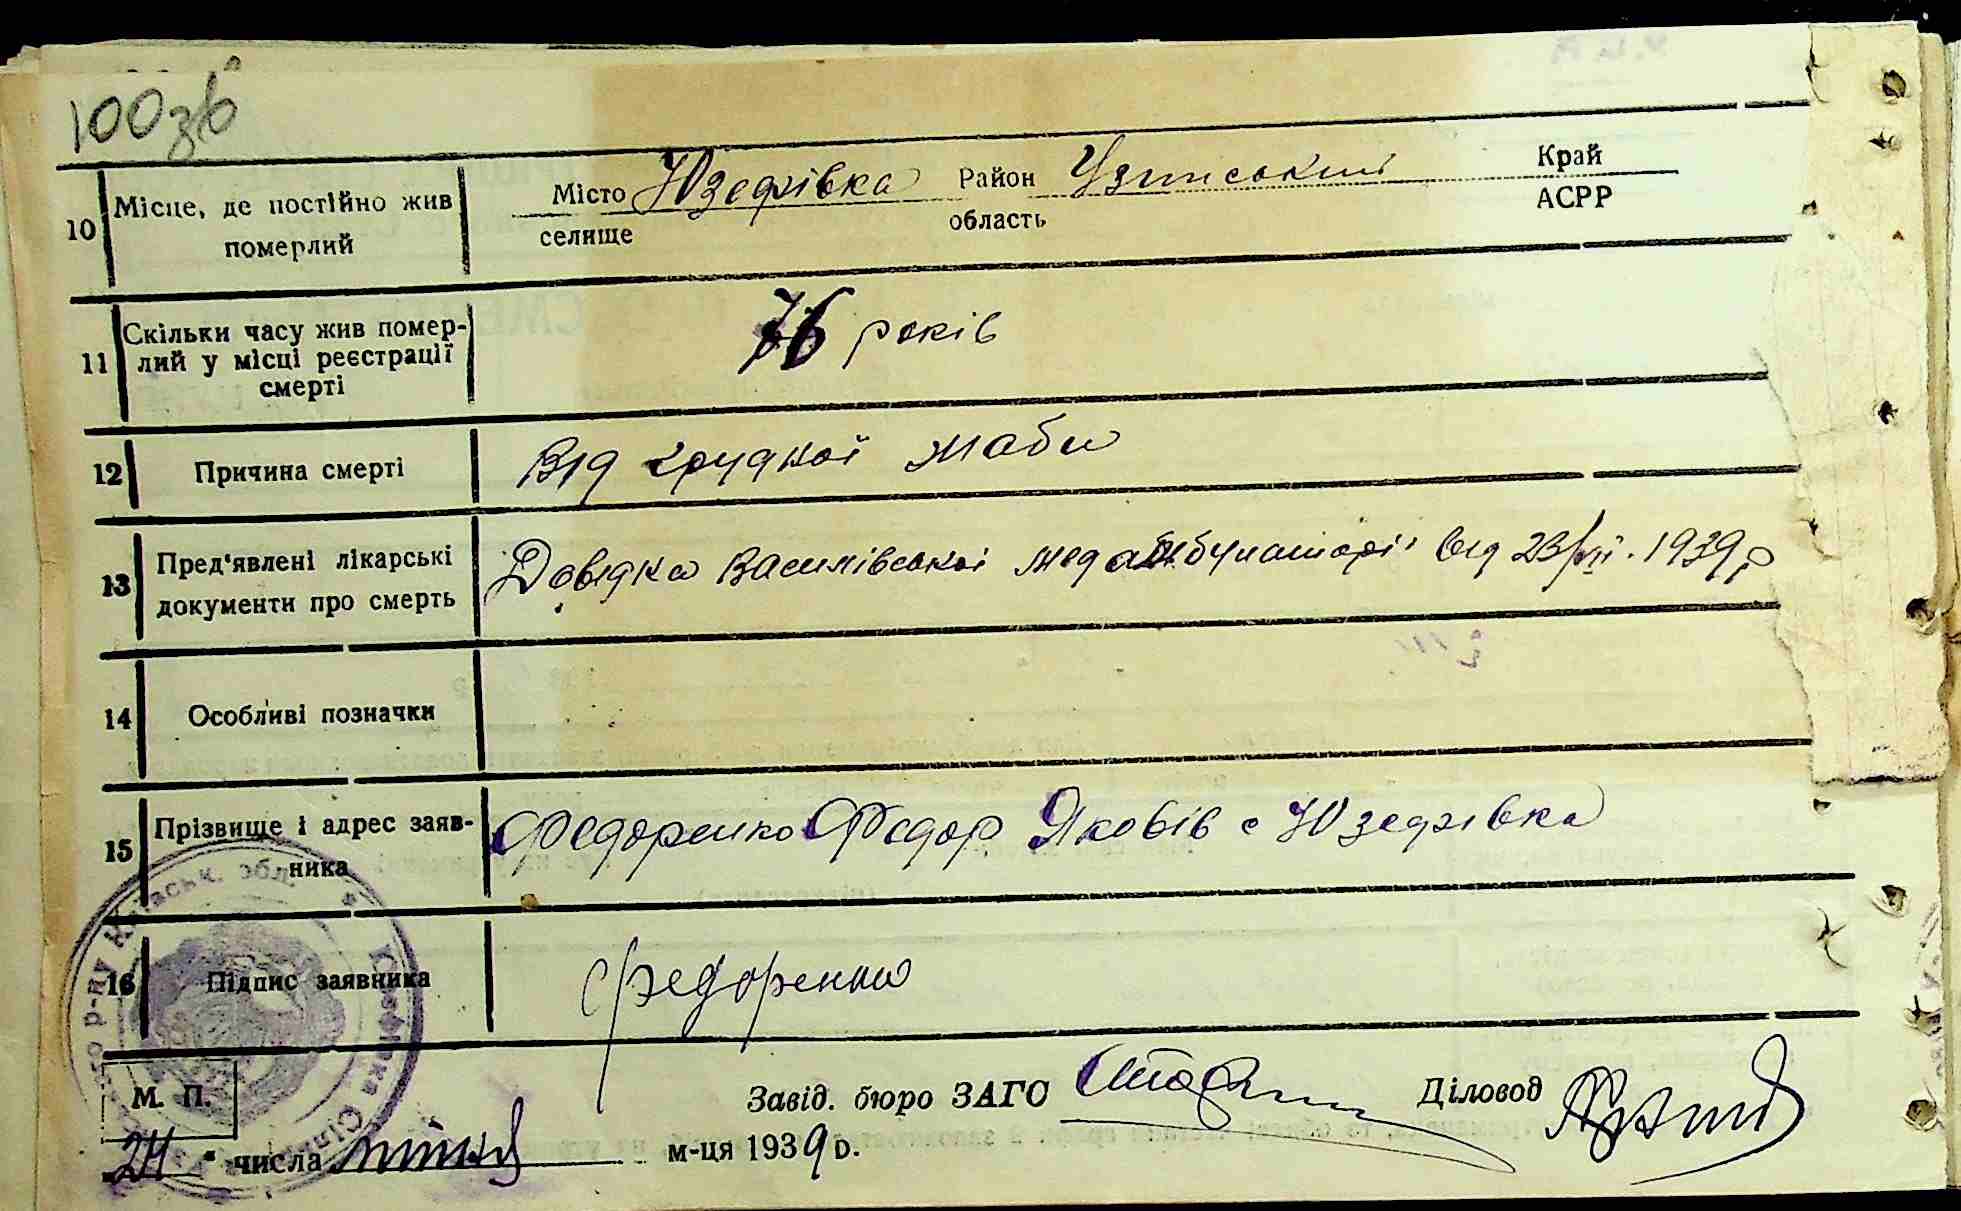 100зв
10 Місце, де постійно жив померлий Місто селище Юзефівка Район область Узинський Край АСРР
11 Скільки часу жив помер-
лий у місці реєстрації
смерті 76 років
12 Причина смерті Від грудної жаби
13 Пред'явлені лікарські
документи про смерть Довідка Василівської мед амбулаторії від 23/VII. 1939 р
14 Особливі позначки
15 Прізвище і адрес заяв-
ника Федоренко Федор Яковів с Юзефівка
16 Підпис заявника Федоренко
М. П. Завід. бюро ЗАГС Діловод
24 числа липня м-ця 1939 р.